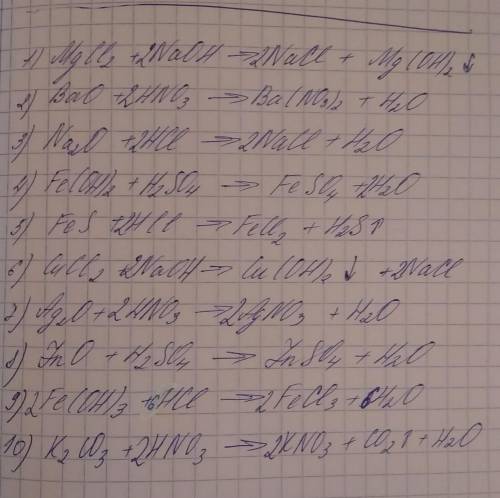 1) MgCl₂ + 2NaOH → 2NaCl + Mg(OH)₂↓
2) BaO + 2HNO₃ → Ba(NO₃)₂ + H₂O
3) Na₂O + 2HCl → 2NaCl + H₂O
4) Fe(OH)₂ + H₂SO₄ → FeSO₄ + 2H₂O
5) FeS + 2HCl → FeCl₂ + H₂S↑
6) CuCl₂ + 2NaOH → Cu(OH)₂↓ + 2NaCl
7) Ag₂O + 2HNO₃ → 2AgNO₃ + H₂O
8) ZnO + H₂SO₄ → ZnSO₄ + H₂O
9) 2Fe(OH)₃ + 6HCl → 2FeCl₃ + 6H₂O
10) K₂CO₃ + 2HNO₃ → 2KNO₃ + CO₂↑ + H₂O